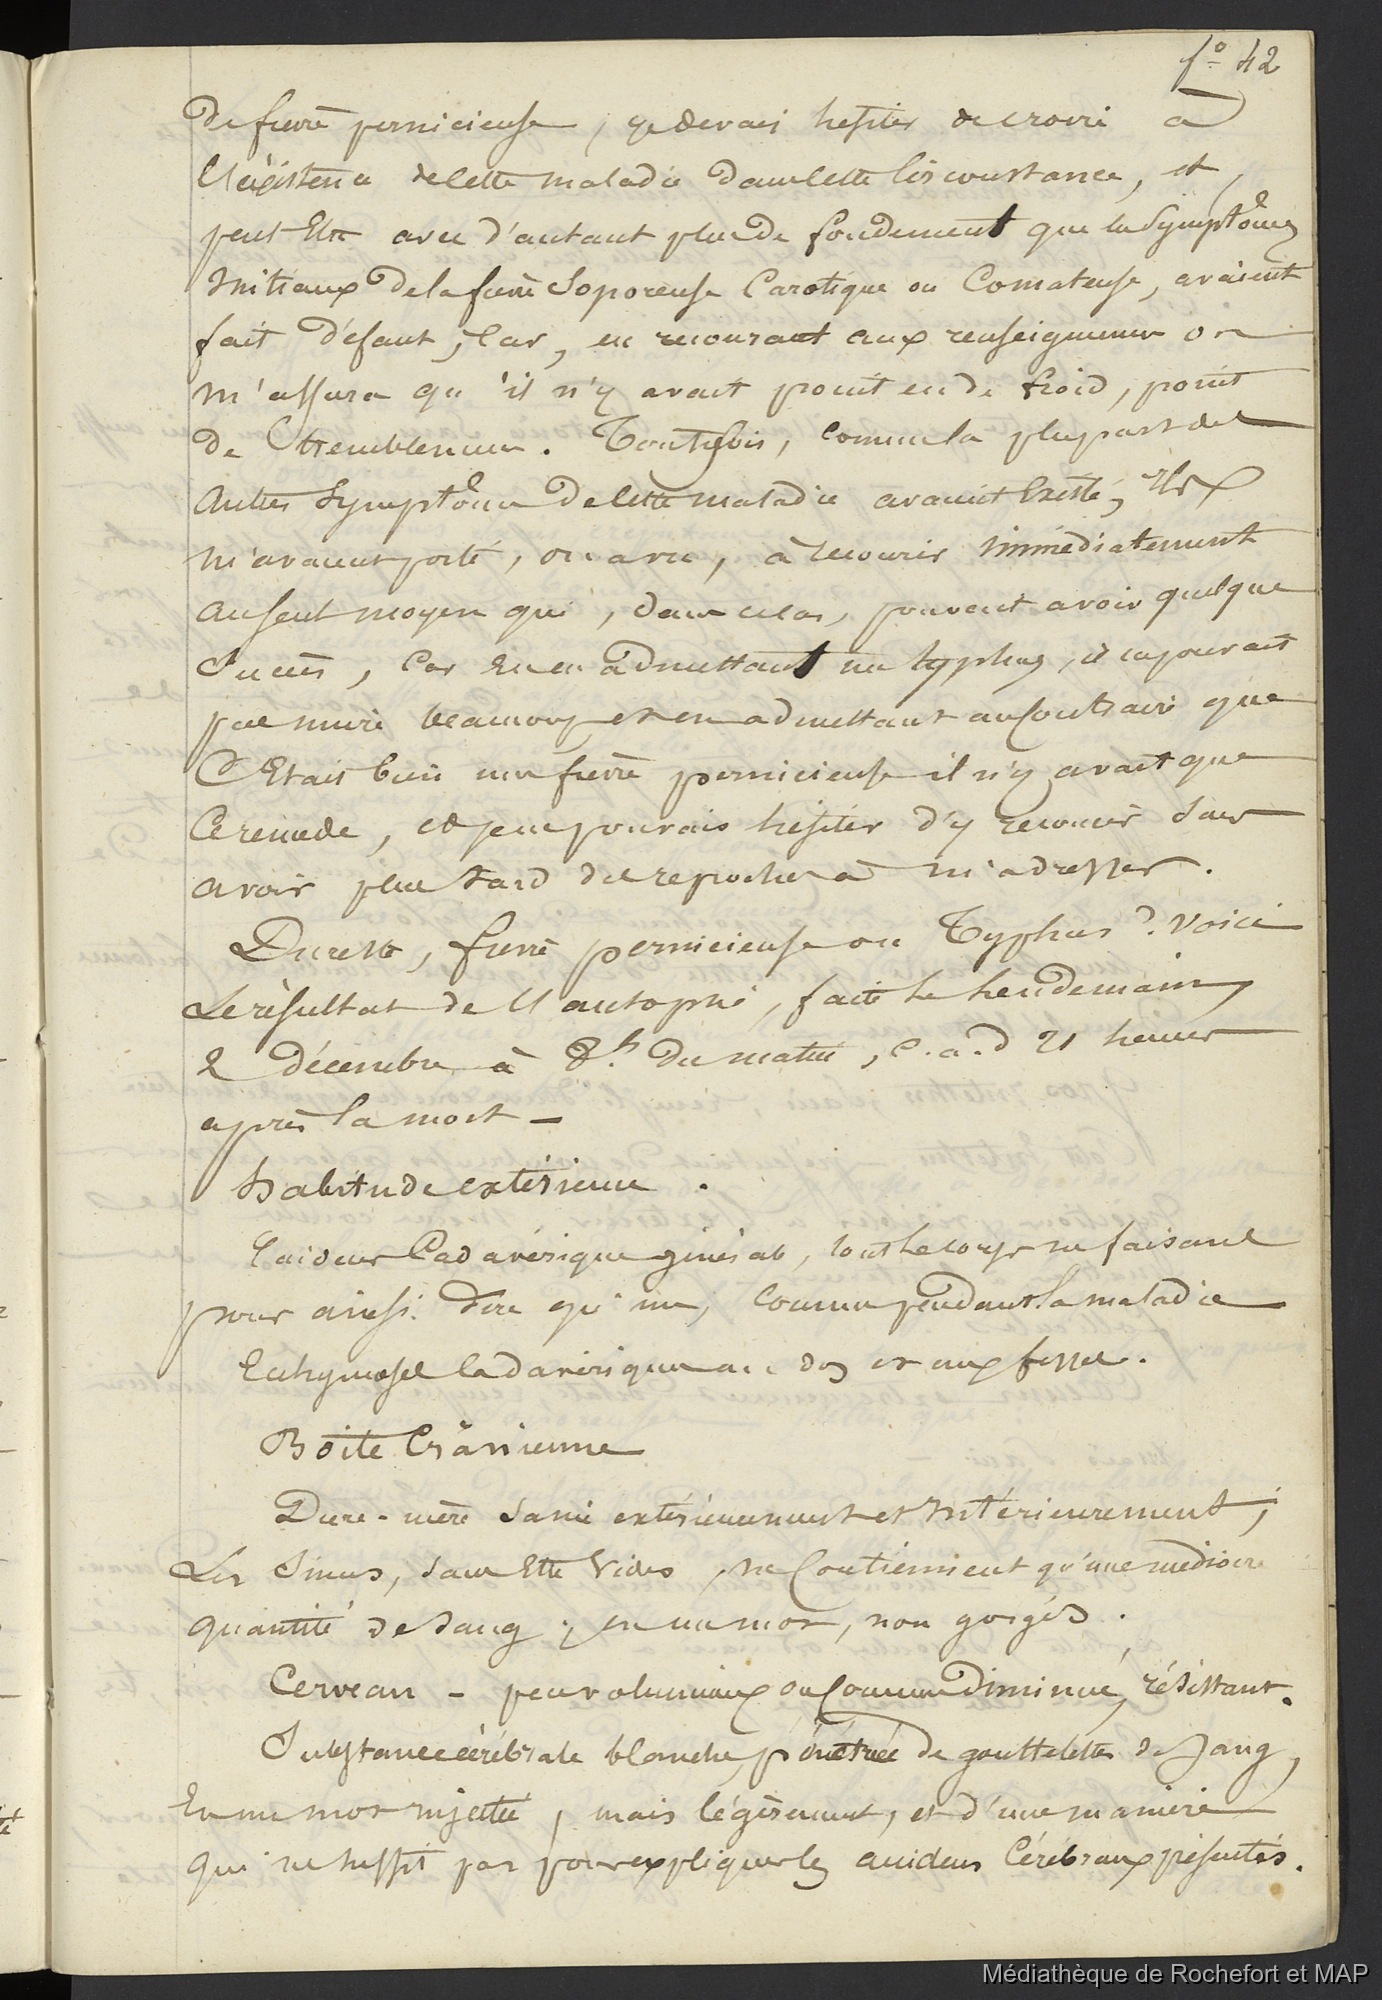 fo 42
de fievre pernicieuse, je devais hesiter de croire a
l'existence de cette maladie dans cette circonstance, et
peut Etre avec d'autant plus de fondement que les symptômes
initiaux de la fievre soporeuse Carotique ou Comateuse, avaient
fait défaut, Car, en recourant aux renseignemens on
m'assura qu'il n'y avait point eu de froid, point
de tremblemens. Toutefois, comme la plupart des
autres symptômes de cette maladie avaient Existé,
m'avaient porté, on a vu, à recourir immédiatement
au seul moyen qui, dans ce cas, pouvait avoir quelque
Succès, Car Even admettant un typhus, il ne pouvait
pas nuire beaucoup et en admettant au Contraire que
C'Etait bien une fievre pernicieuse il n'y avait que
Ce remede, et je ne pouvais hésiter d'y recourir sans
avoir plus tard des reproches à m'adresser.
Du reste, fievre pernicieuse ou Typhus ? Voici
Le résultat de l'autopsie, faite le lendemain,
2 décembre à 8h. du matin, c.a.d 21 heures
après la mort –
habitude extérieure.
Raideur Cadavérique générale, tout le corps ne faisant
pour ainsi dire qu'un, comme pendant la maladie
Echymoses Cadavériques au dos et aux fesses.
Boite Crânienne
Dure-mère saine extérieurement et intérieurement;
Les Sinus, sans Etre Vides, ne Contiennent qu'une médiocre
quantité de sang; en un mot, non gorgés.
Cerveau – peu volumineux ou Comme Diminué, résistant.
Substance cérébrale blanche, pénétrée de gouttelettes de sang,
En un mot injectée, mais légèrement, et d'une maniere
qui ne suffit pas pour expliquer les accidens Cérébraux présentés.
Médiathèque de Rochefort et MAP